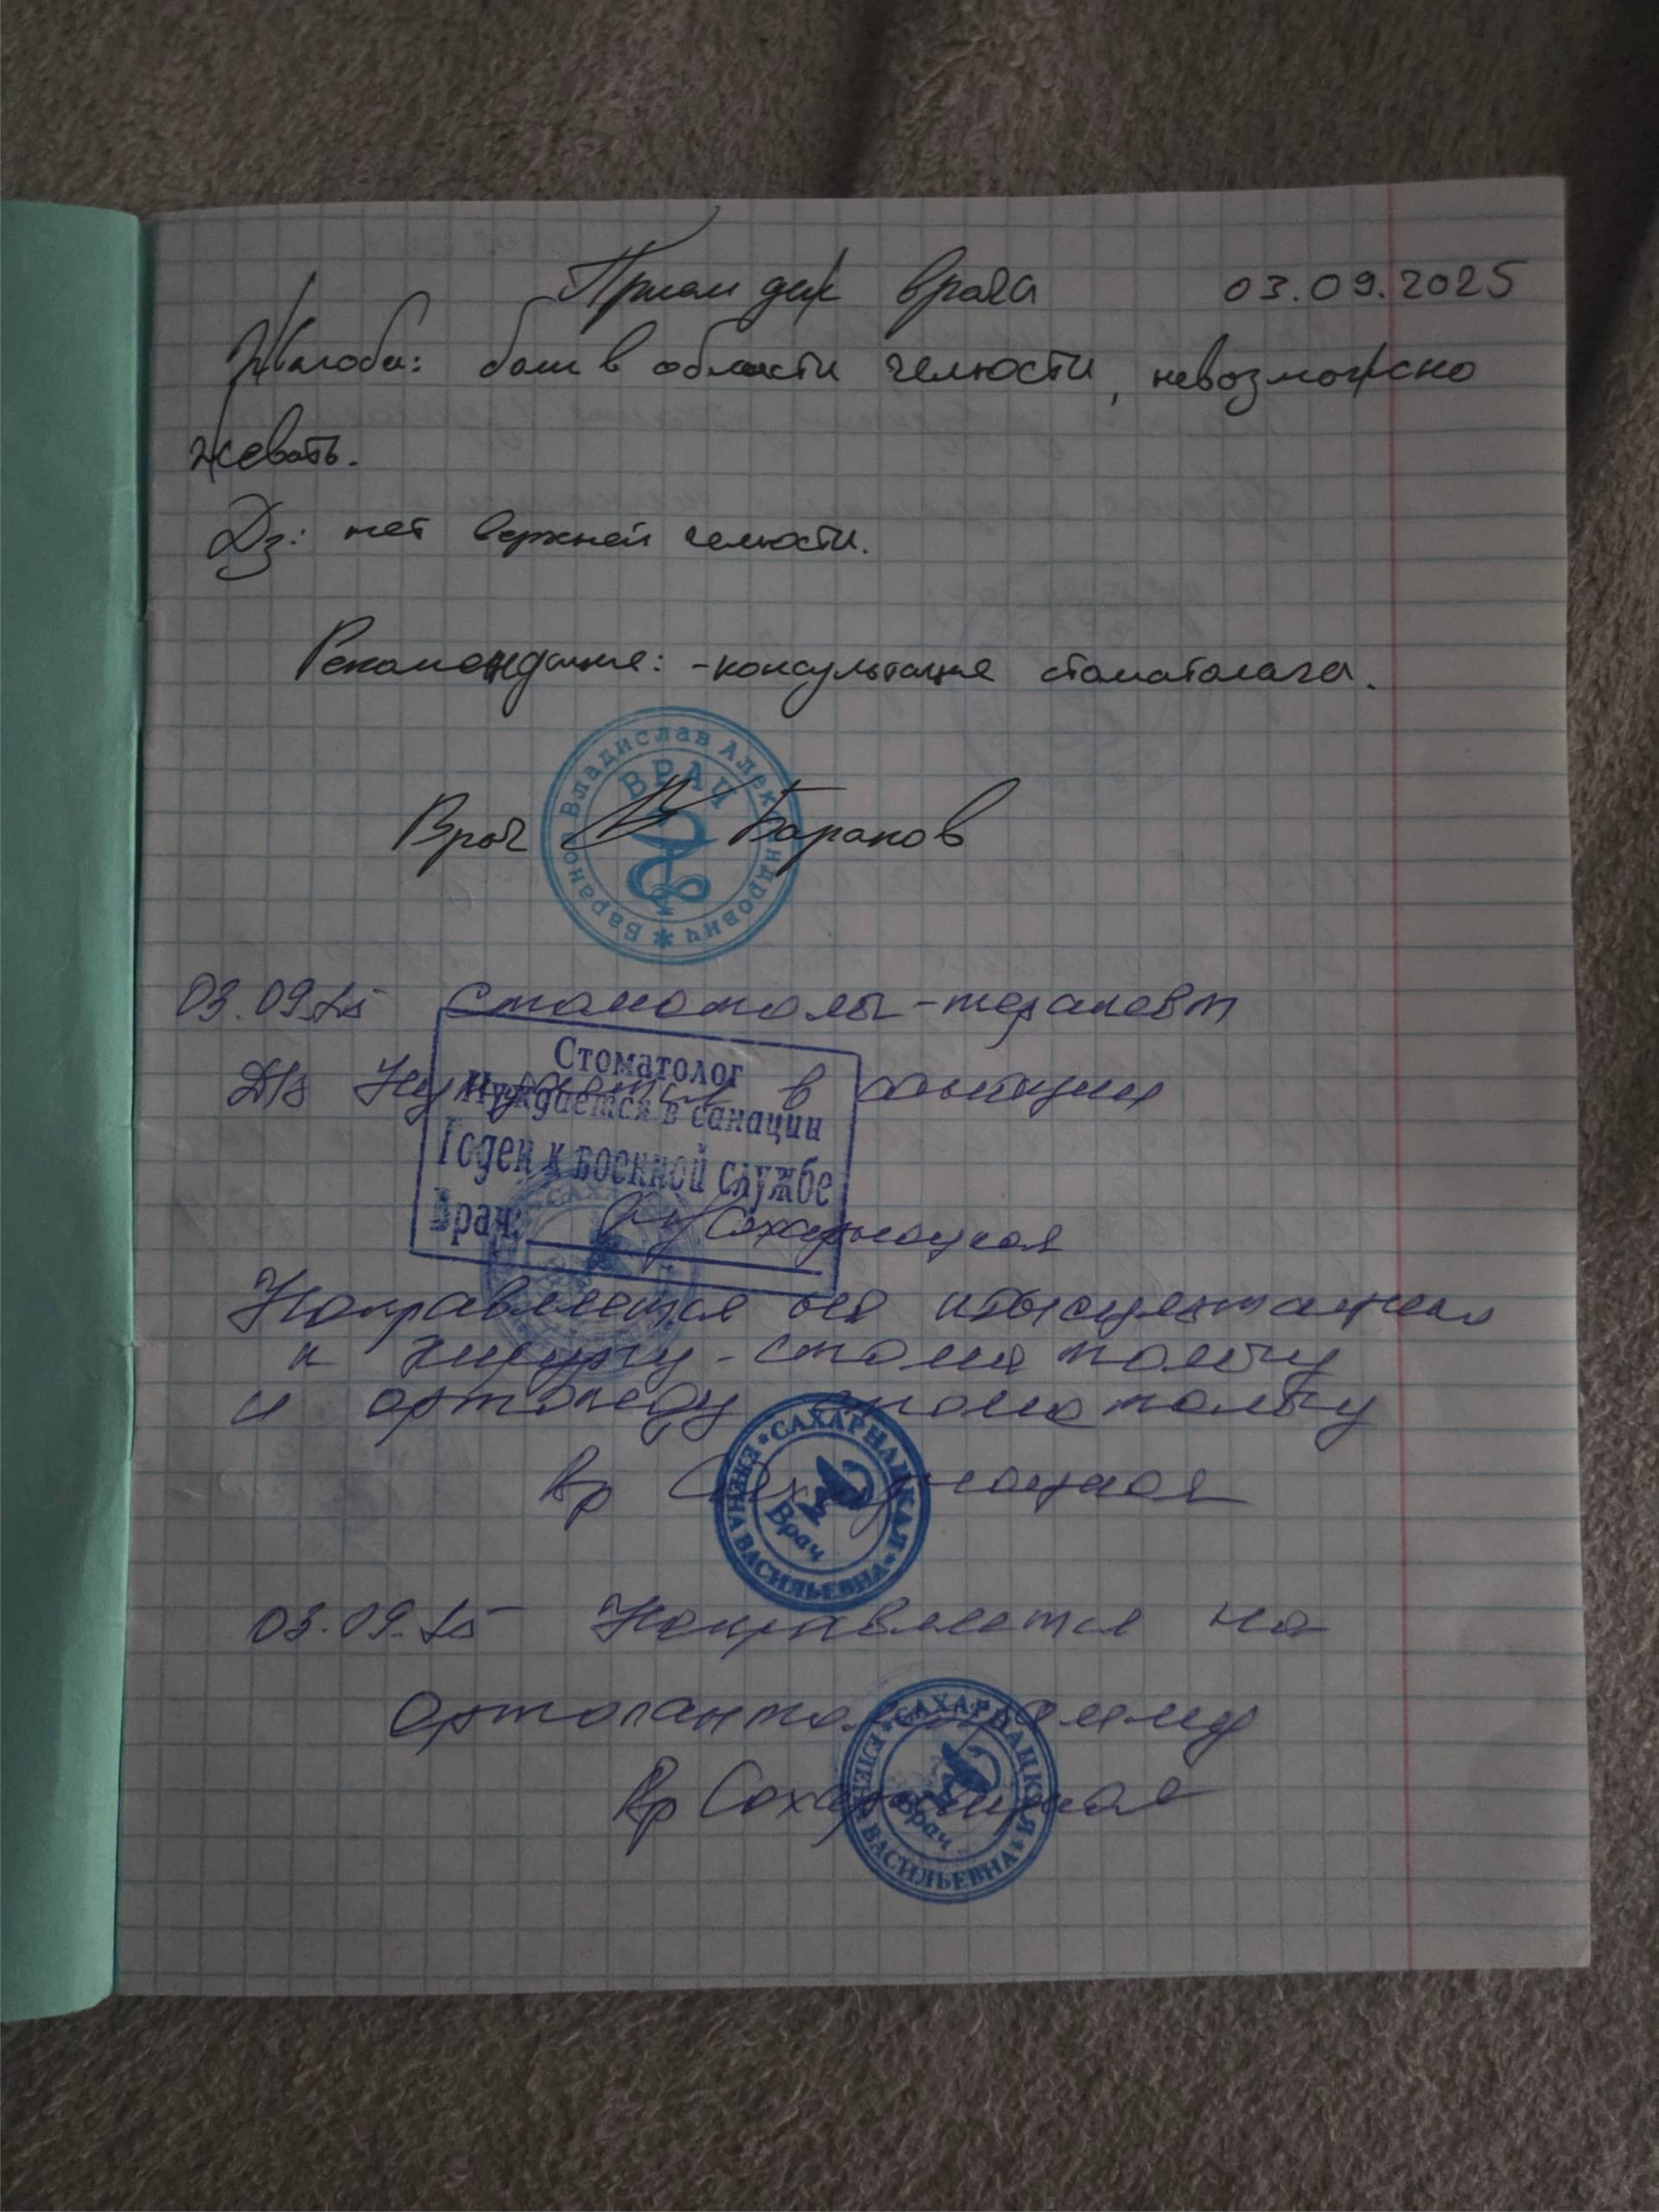 Прием деж врача 03.09.2025
Жалобы: боли в области челюсти, невозможно
жевать.
Dз: нет верхней челюсти.
Рекомендация: -консультация стоматолога.
Баранов Владислав Александрович
ВРАЧ
Врач Баранов
03.09.25 Стоматолог-терапевт
Стоматолог
D/s Нуждается в санации
Нуждается в санации
Годен к военной службе
Врач: Сахарнацкая
Направляется на консультацию
к хирургу-стоматологу
и ортопеду стоматологу
Вр Сахарнацкая
САХАРНАЦКАЯ ЕЛЕНА ВАСИЛЬЕВНА
Врач
03.09.25 Направляется на
ортопантомограмму
Вр Сахарнацкая
САХАРНАЦКАЯ ЕЛЕНА ВАСИЛЬЕВНА
Врач